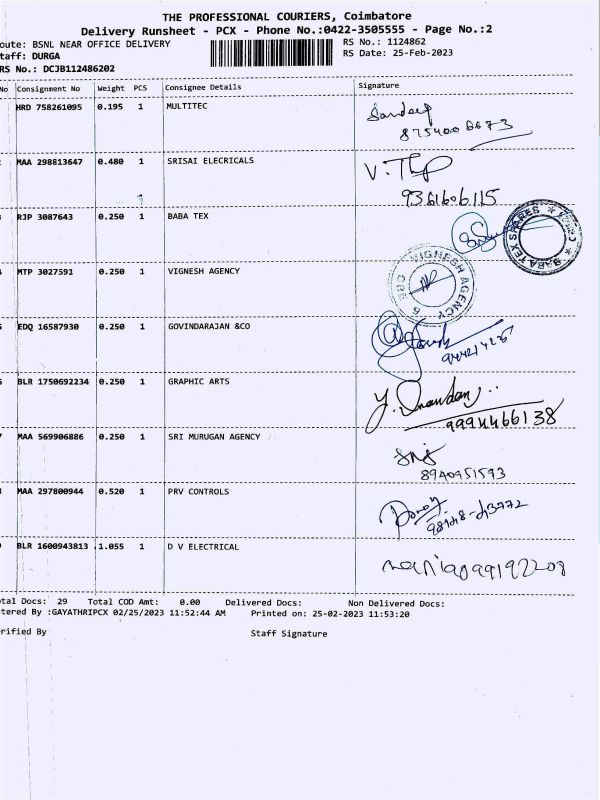 THE PROFESSIONAL COURIERS, Coimbatore
Delivery Runsheet - PCX - Phone No.:0422-3505555 - Page No.:2
oute: BSNL NEAR OFFICE DELIVERY RS No.: 1124862
taff: DURGA RS Date: 25-Feb-2023
RS No.: DCJB112486202
No Consignment No Weight PCS Consignee Details Signature
HRD 758261095 0.195 1 MULTITEC Sandeep
MAA 298813647 0.480 1 SRISAI ELECRICALS
9361606115
RJP 3087643 0.250 1 BABA TEX
BABA TEX SPARES
MTP 3027591 0.250 1 VIGNESH AGENCY
VIGNESH AGENCY
EDQ 16587930 0.250 1 GOVINDARAJAN &CO
BLR 1750692234 0.250 1 GRAPHIC ARTS
9994466138
MAA 569906886 0.250 1 SRI MURUGAN AGENCY
8940951593
MAA 297800944 0.520 1 PRV CONTROLS
BLR 1600943813 1.055 1 D V ELECTRICAL
otal Docs: 29 Total COD Amt: 0.00 Delivered Docs: Non Delivered Docs:
tered By :GAYATHRIPCX 02/25/2023 11:52:44 AM Printed on: 25-02-2023 11:53:20
rified By Staff Signature